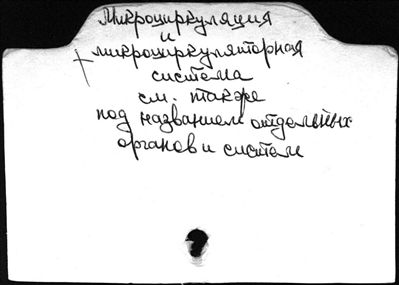 Микроциркуляция
и
микроциркуляторная
система
см. также
под названием отдельных
органов и систем